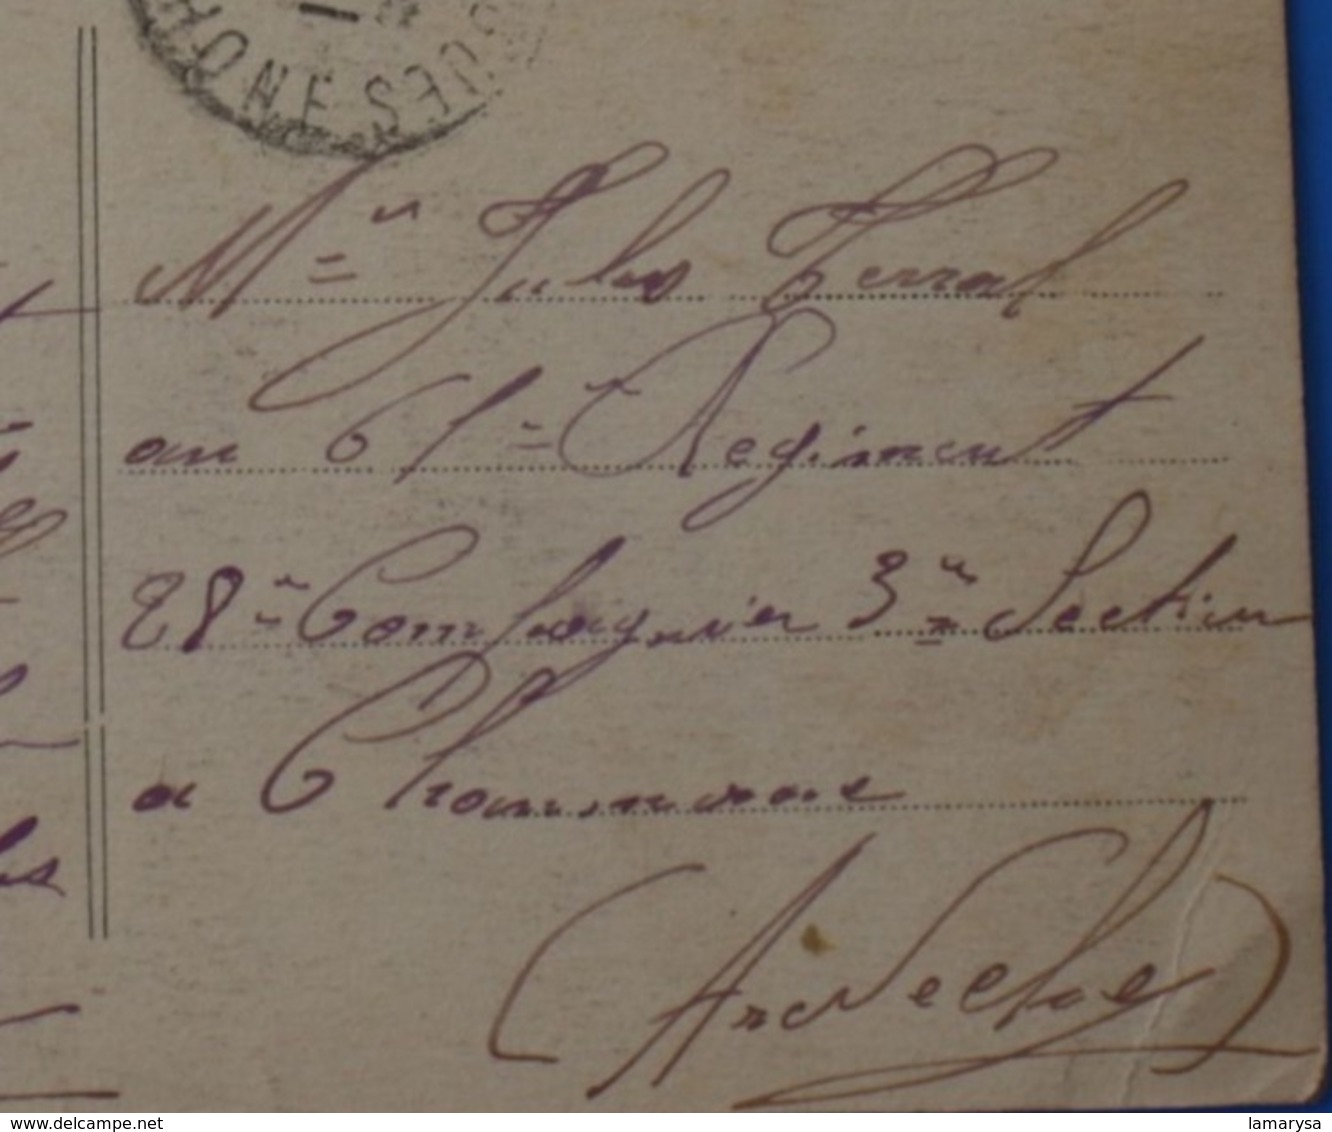 HONE SUES
Mr Jules Terral
au 61e Regiment
28e Compagnie 3me Section
a Chomerac
(Ardeche)
www.delcampe.net
lamarysa